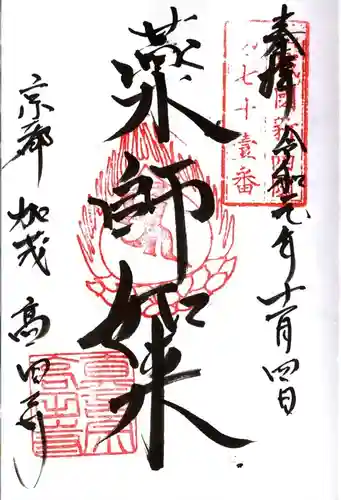 奉拝 令和元年十一月四日
七十壹番
薬師如来
京都 加茂 高田寺